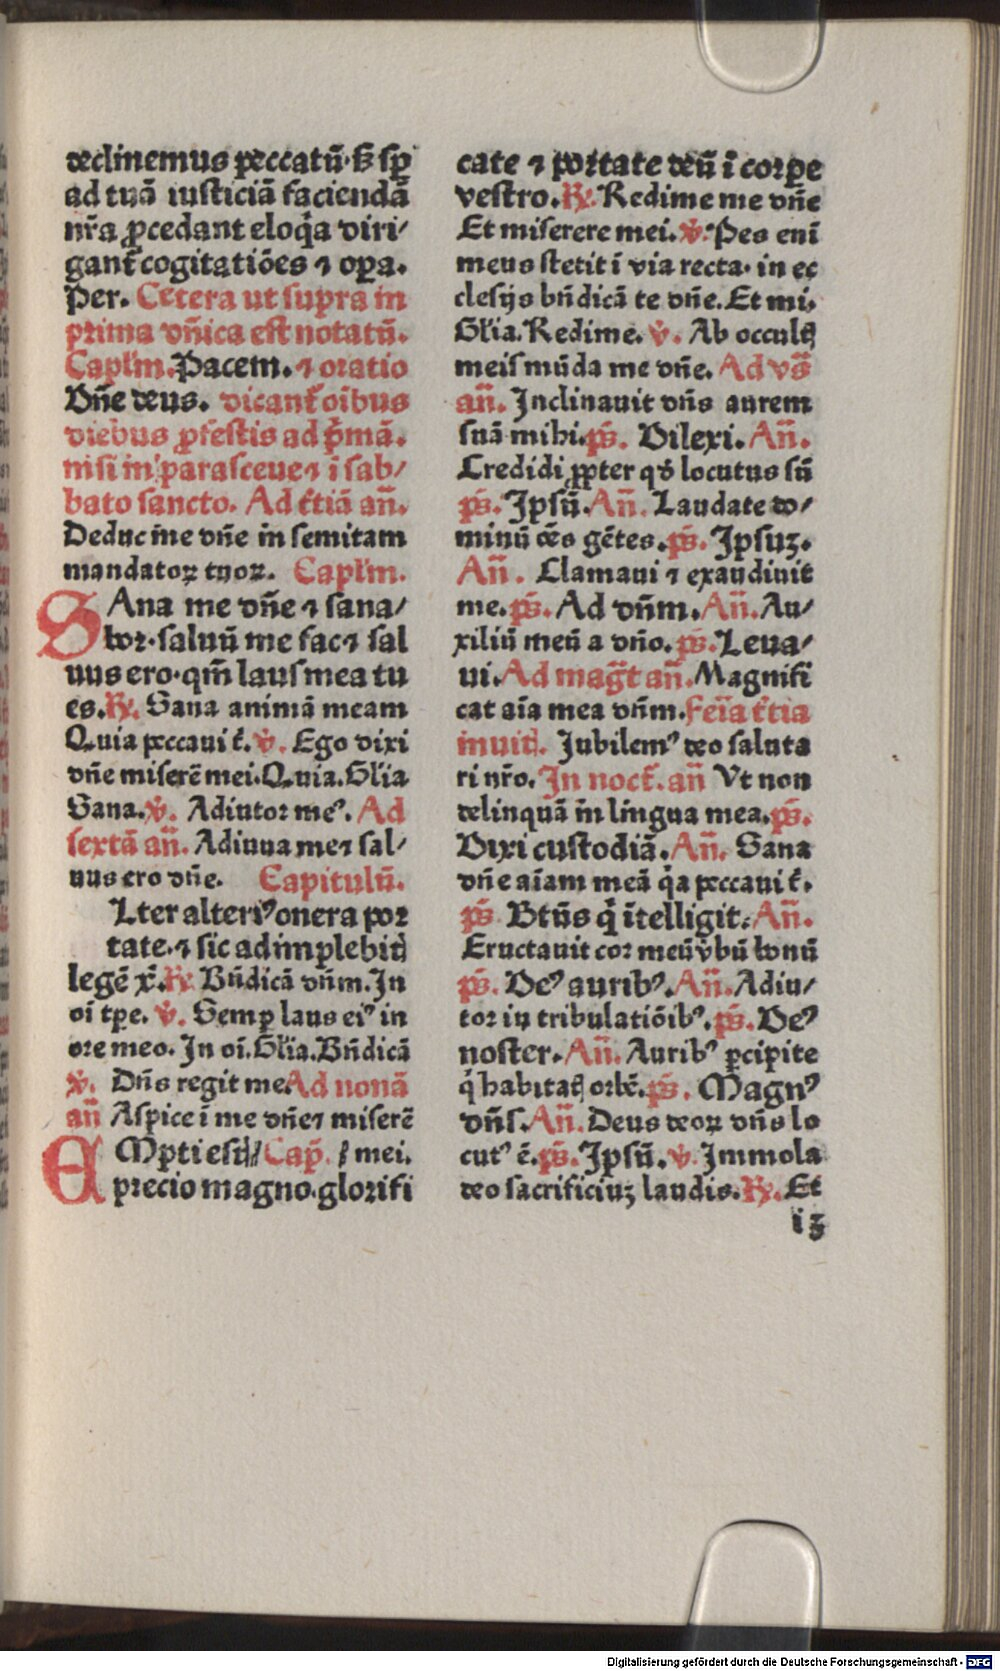 declinemus peccatū·sꝫ sꝑ
ad tuā iusticiā faciendā
nr̄a ꝓcedant eloq̄a diri/
gant̄ cogitatiōes ⁊ oꝑa.
Per. Cetera ut supra in
prima dn̄ica est notatū.
Capl'm. Pacem. ⁊ oratio
Dn̄e deus. dicant̄ oībus
diebus ꝓfestis ad p̄mā.
nisi in parasceue ⁊ ī sab/
bato sancto. Ad t̄tiā an̄.
Deduc me dn̄e in semitam
mandatoꝝ tuoꝝ. Capl'm.
SAna me dn̄e ⁊ sana/
bor·saluū me fac ⁊ sal
uus ero·qm̄ laus mea tu
es. ℟. Sana animā meam
Quia peccaui t̄. ℣. Ego dixi
dn̄e miserē mei·Quia. Gl'ia
Sana. ℣. Adiutor meꝰ. Ad
sextā an̄. Adiuua me ⁊ sal/
uus ero dn̄e. Capitulū.
Lter alteriꝰ onera por
tate.⁊ sic adimplebitꝭ
legē xp̄i. ℟. Bn̄dicā dn̄m. In
oī tꝑe. ℣. Semꝑ laus eiꝰ in
ore meo. In oī. Gl'ia. Bn̄dicā
℣. Dn̄s regit me Ad nonā
an̄ Aspice ī me dn̄e ⁊ miserē
EMpti estꝭ // Cap̄. / mei.
precio magno·glorifi
cate ⁊ portate deū ī corꝑe
vestro. ℟. Redime me dn̄e
Et miserere mei. ℣. Pes enī
meus stetit ī via recta· in ec
clesijs bn̄dicā te dn̄e. Et mi.
Gl'ia. Redime. ℣. Ab occultꝭ
meis mūda me dn̄e. Ad vs̄
an̄. Inclinauit dn̄s aurem
suā mihi. ps̄. Dilexi. An̄.
Credidi ꝓpter qd̄ locutus sū
ps̄. Ipsū. An̄. Laudate do/
minū oēs gētes. ps̄. Ipsuꝫ.
An̄. Clamaui ⁊ exaudiuit
me. ps̄. Ad dn̄m. An̄. Au/
xiliū meū a dn̄o. ps̄. Leua/
ui. Ad maḡt an̄. Magnifi
cat aīa mea dn̄m. Feīa t̄tia
inuitꝭ. Jubilemꝰ deo saluta
ri nr̄o. In noct̄. an̄ Vt non
delinquā in lingua mea. ps̄.
Dixi custodiā. An̄. Sana
dn̄e aīam meā q̄a peccaui t̄.
ps̄ Btūs q̄ ītelligit. An̄.
Eructauit cor meū v̄bū bonū
ps̄. Deꝰ auribꝰ. An̄. Adiu/
tor in tribulatiōibꝰ. ps̄. Deꝰ
noster. An̄. Auribꝰ ꝑcipite
q̄ habitatꝭ orbē. ps̄. Magnꝰ
dn̄s. An̄. Deus deoꝝ dn̄s lo
cutꝰ ē. ps̄. Ipsū. ℣. Immola
deo sacrificiuꝫ laudis. ℟. Et
iꝫ
Digitalisierung gefördert durch die Deutsche Forschungsgemeinschaft - DFG